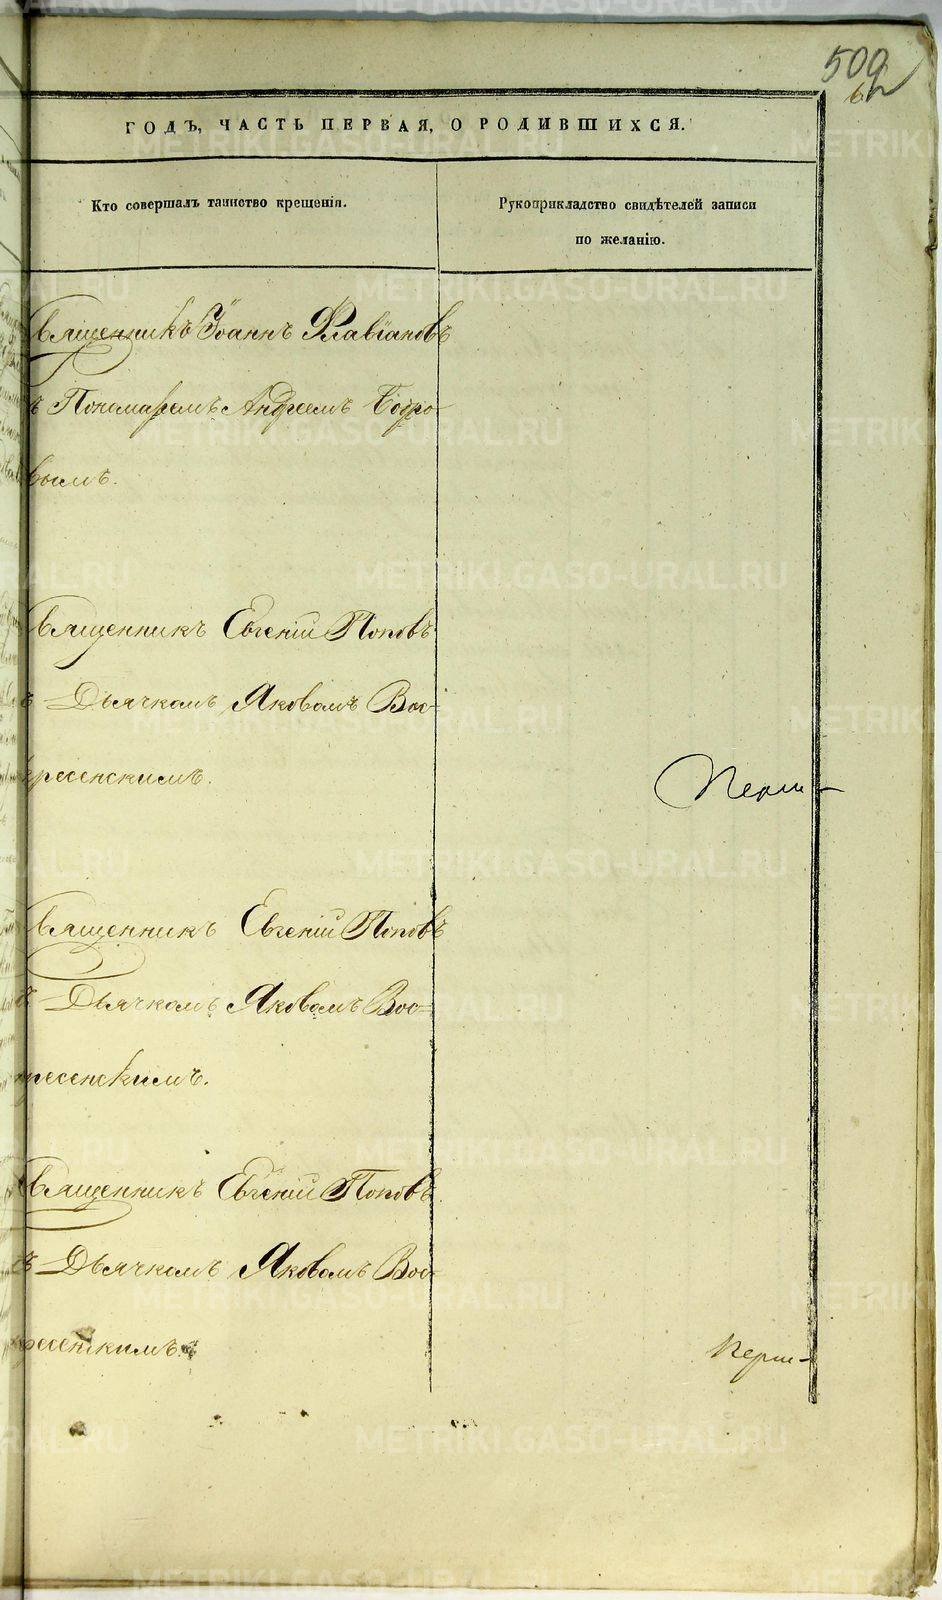 500
ГОДЪ, ЧАСТЬ ПЕРВАЯ, О РОДИВШИХСЯ.
Кто совершалъ таинство крещенія.
Рукоприкладство свидѣтелей записи
по желанію.
Священникъ Іоаннъ Флавіановъ
съ Пономаремъ Андреемъ Бобро-
вымъ.
Священникъ Евгеній Поповъ
съ Дьячкомъ Яковомъ Вос-
кресенскимъ.
Священникъ Евгеній Поповъ
съ Дьячкомъ Яковомъ Вос-
кресенскимъ.
Священникъ Евгеній Поповъ
съ Дьячкомъ Яковомъ Вос-
кресенскимъ.
METRIKI.GASO-URAL.RU